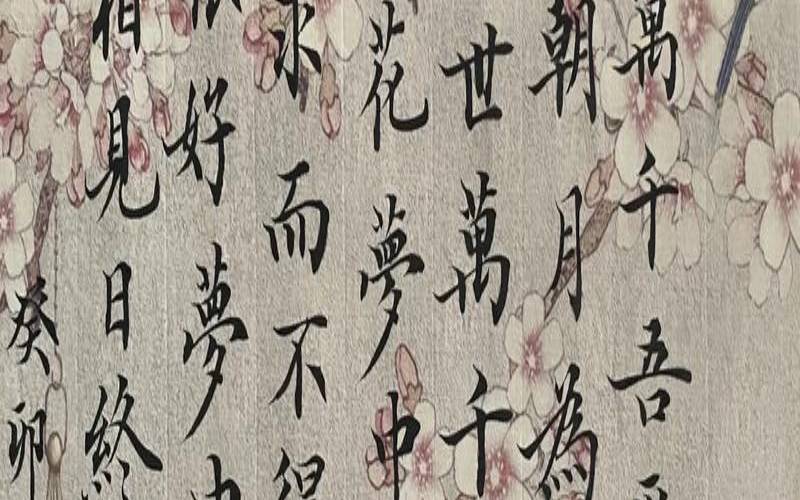 萬千吾
朝月為
世萬千
花夢中
求而不得
好夢
相見日終
癸卯